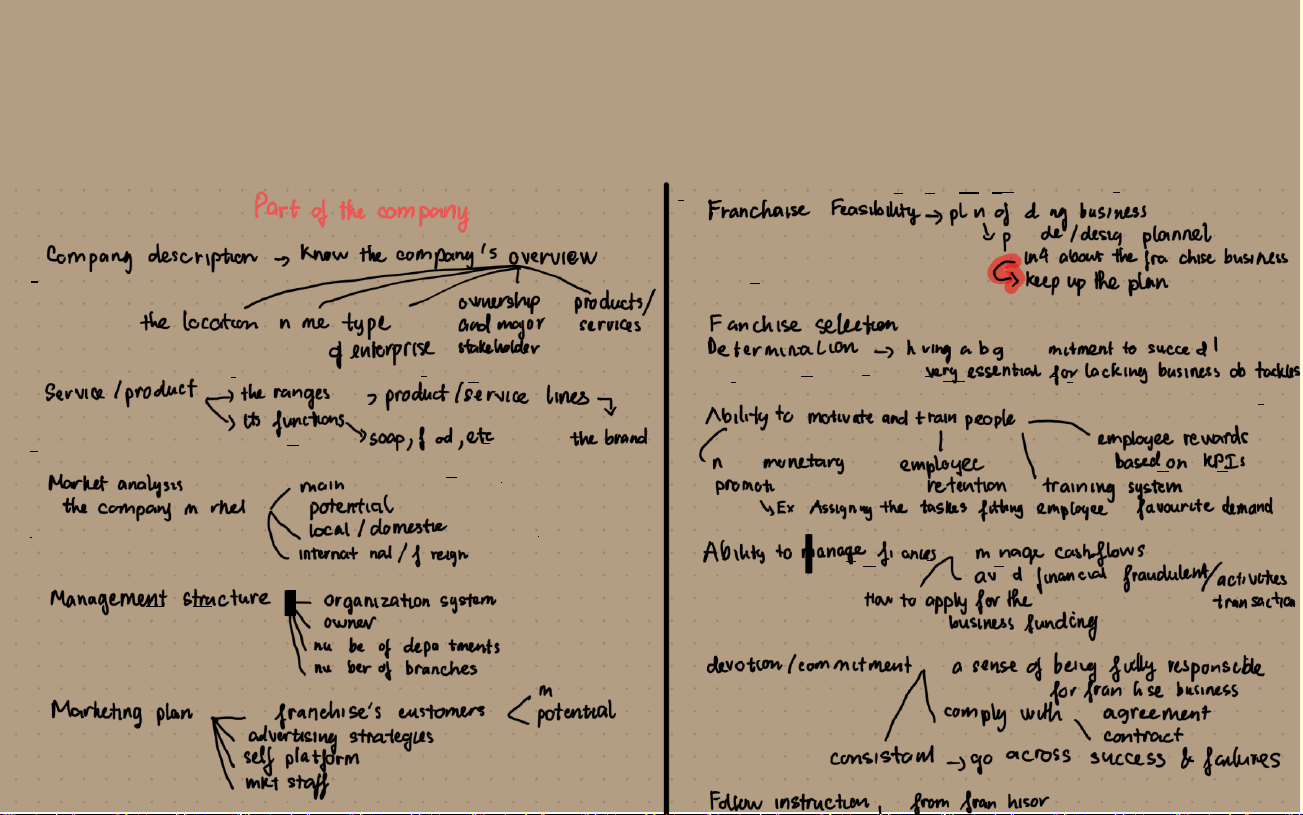 Part of the company
Company description → know the company's overview
the location n me type of enterprise
ownership and major stakeholder
products/ services
Service /product → the ranges → product /service lines → the brand
→ its functions → soap, f od, etc
Market analysis
the company m rket
main
potential
local / domestic
internat nal / f reign
Management structure
organization system
owner
nu be of depa tments
nu ber of branches
Marketing plan
franchise's customers < m
potential
advertising strategies
self platform
mkt staff
Franchaise Feasibility → pl n of d ng business
↳ p de / desig plannel
in4 about the fra chise business
→ keep up the plan
Fanchise selection
Determination → h ving a b g mitment to succe d l
very essential for lacking business ob tackles
Ability to motivate and train people
n monetary
promoti
employee
retention
training system
employee rewards
based on KPIs
↳ Ex Assigning the taskes fitting employee favourite demand
Ability to manage fi ances
m nage cashflows
av d financial fraudulent / activities
transaction
How to apply for the
business funding
devotion / commitment
a sense of being fully responsible
for fran hise business
comply with
agreement
contract
consistant → go across success & failures
Follow instruction, from fran hisor